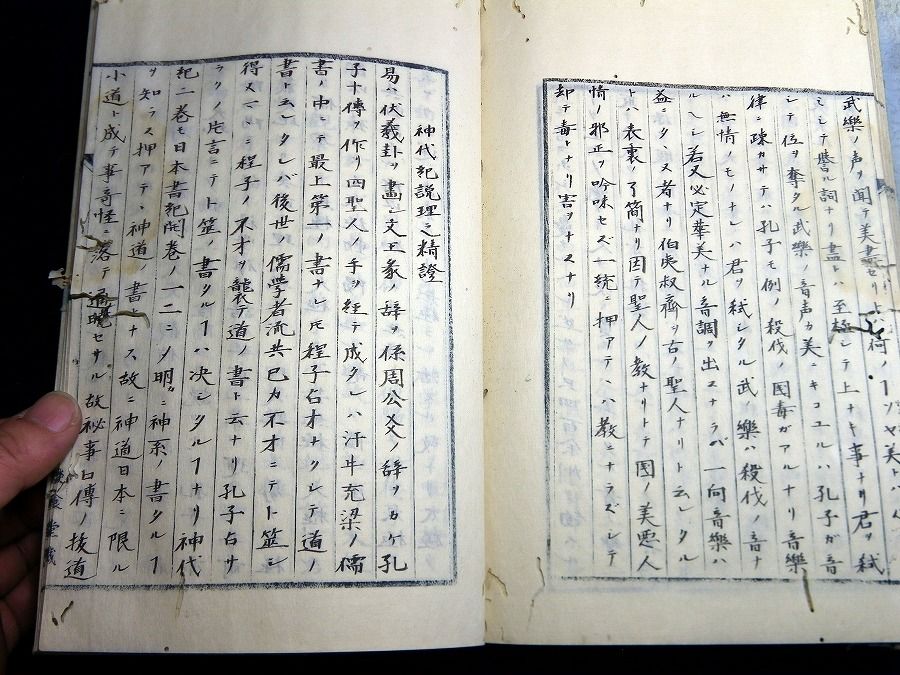 武樂ノ声ヲ聞テ美盡セリト何ノヿソヤ美トハ
ミシテ譽ル詞ナリ盡トハ至極シテ上ナキ事ナリ君ヲ弒
シテ位ヲ奪タル武樂ノ音声カ美ニキコユルハ孔子ガ音
律ニ疎カサテハ孔子モ例ノ殺伐ノ国毒ガアルナリ音樂
ハ無情ノモノナレハ君ヲ弒シタル武ノ樂ハ殺伐ノ音ナ
ルヘシ若又必定華美ナル音調ヲ出スナラバ一向音樂ハ
益ニタヽス者ナリ伯夷叔齊ヲ古ノ聖人ナリト云シタル
トハ表裏ノ了簡ナリ因テ聖人ノ教ナリトテ国ノ美悪人
情ノ邪正ヲ吟味セズ一統ニ押アテヽハ教ニナラズシテ
却テ毒トナリ害ヲナスナリ
神代紀説理之精證
易ハ伏羲卦ヲ畫シ文王彖ノ辞ヲ係周公爻ノ辞ヲカケ孔
子十傳ヲ作リ四聖人ノ手ヲ経テ成タレハ汗牛充梁ノ儒
書ノ中ニテ最上第一ノ書ナレ𪜈程子台才ナクシテ道ノ
書ト云シタレバ後世ノ儒學者流共己カ不才ニテト筮シ
得スマヽニ程子ノ不才ヲ襲テ道ノ書ト云ナリ孔子占サ
ラクノ片言ニテト筮ノ書タルヿハ决シタルヿナリ神代
紀二巻モ日本書紀開巻ノ一二ニメ明ニ神系ノ書タルヿ
ヲ知ラス押アテヽ神道ノ書トナス故ニ神道日本ニ限ル
小道ト成テ事奇怪ニ落テ通曉セサル故秘事口傳ノ拔道